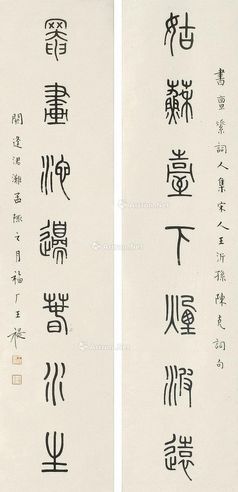 書詞人集宋人王沂孫陳克詞句
姑蘇臺下煙波遠
罨畫池邊春水生
閼逢涒灘孟陬之月福厂王禔